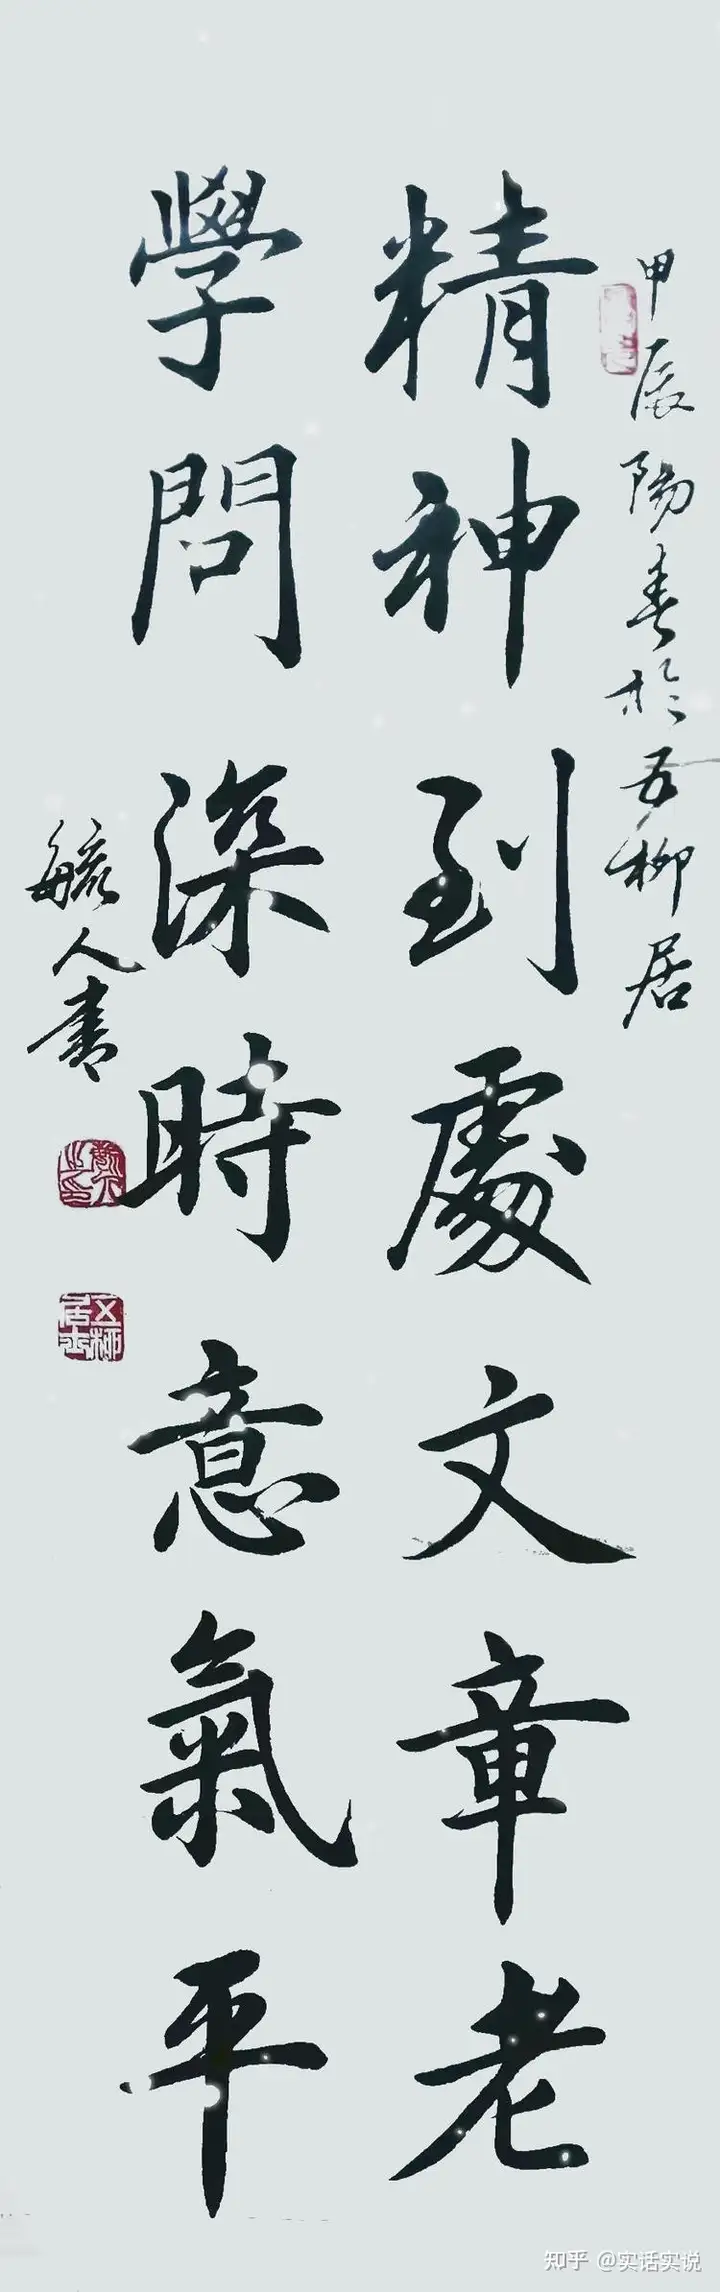 甲辰陽春於五柳居
精神到處文章老
學問深時意氣平
毓人書
五柳居士
知乎 @实话实说